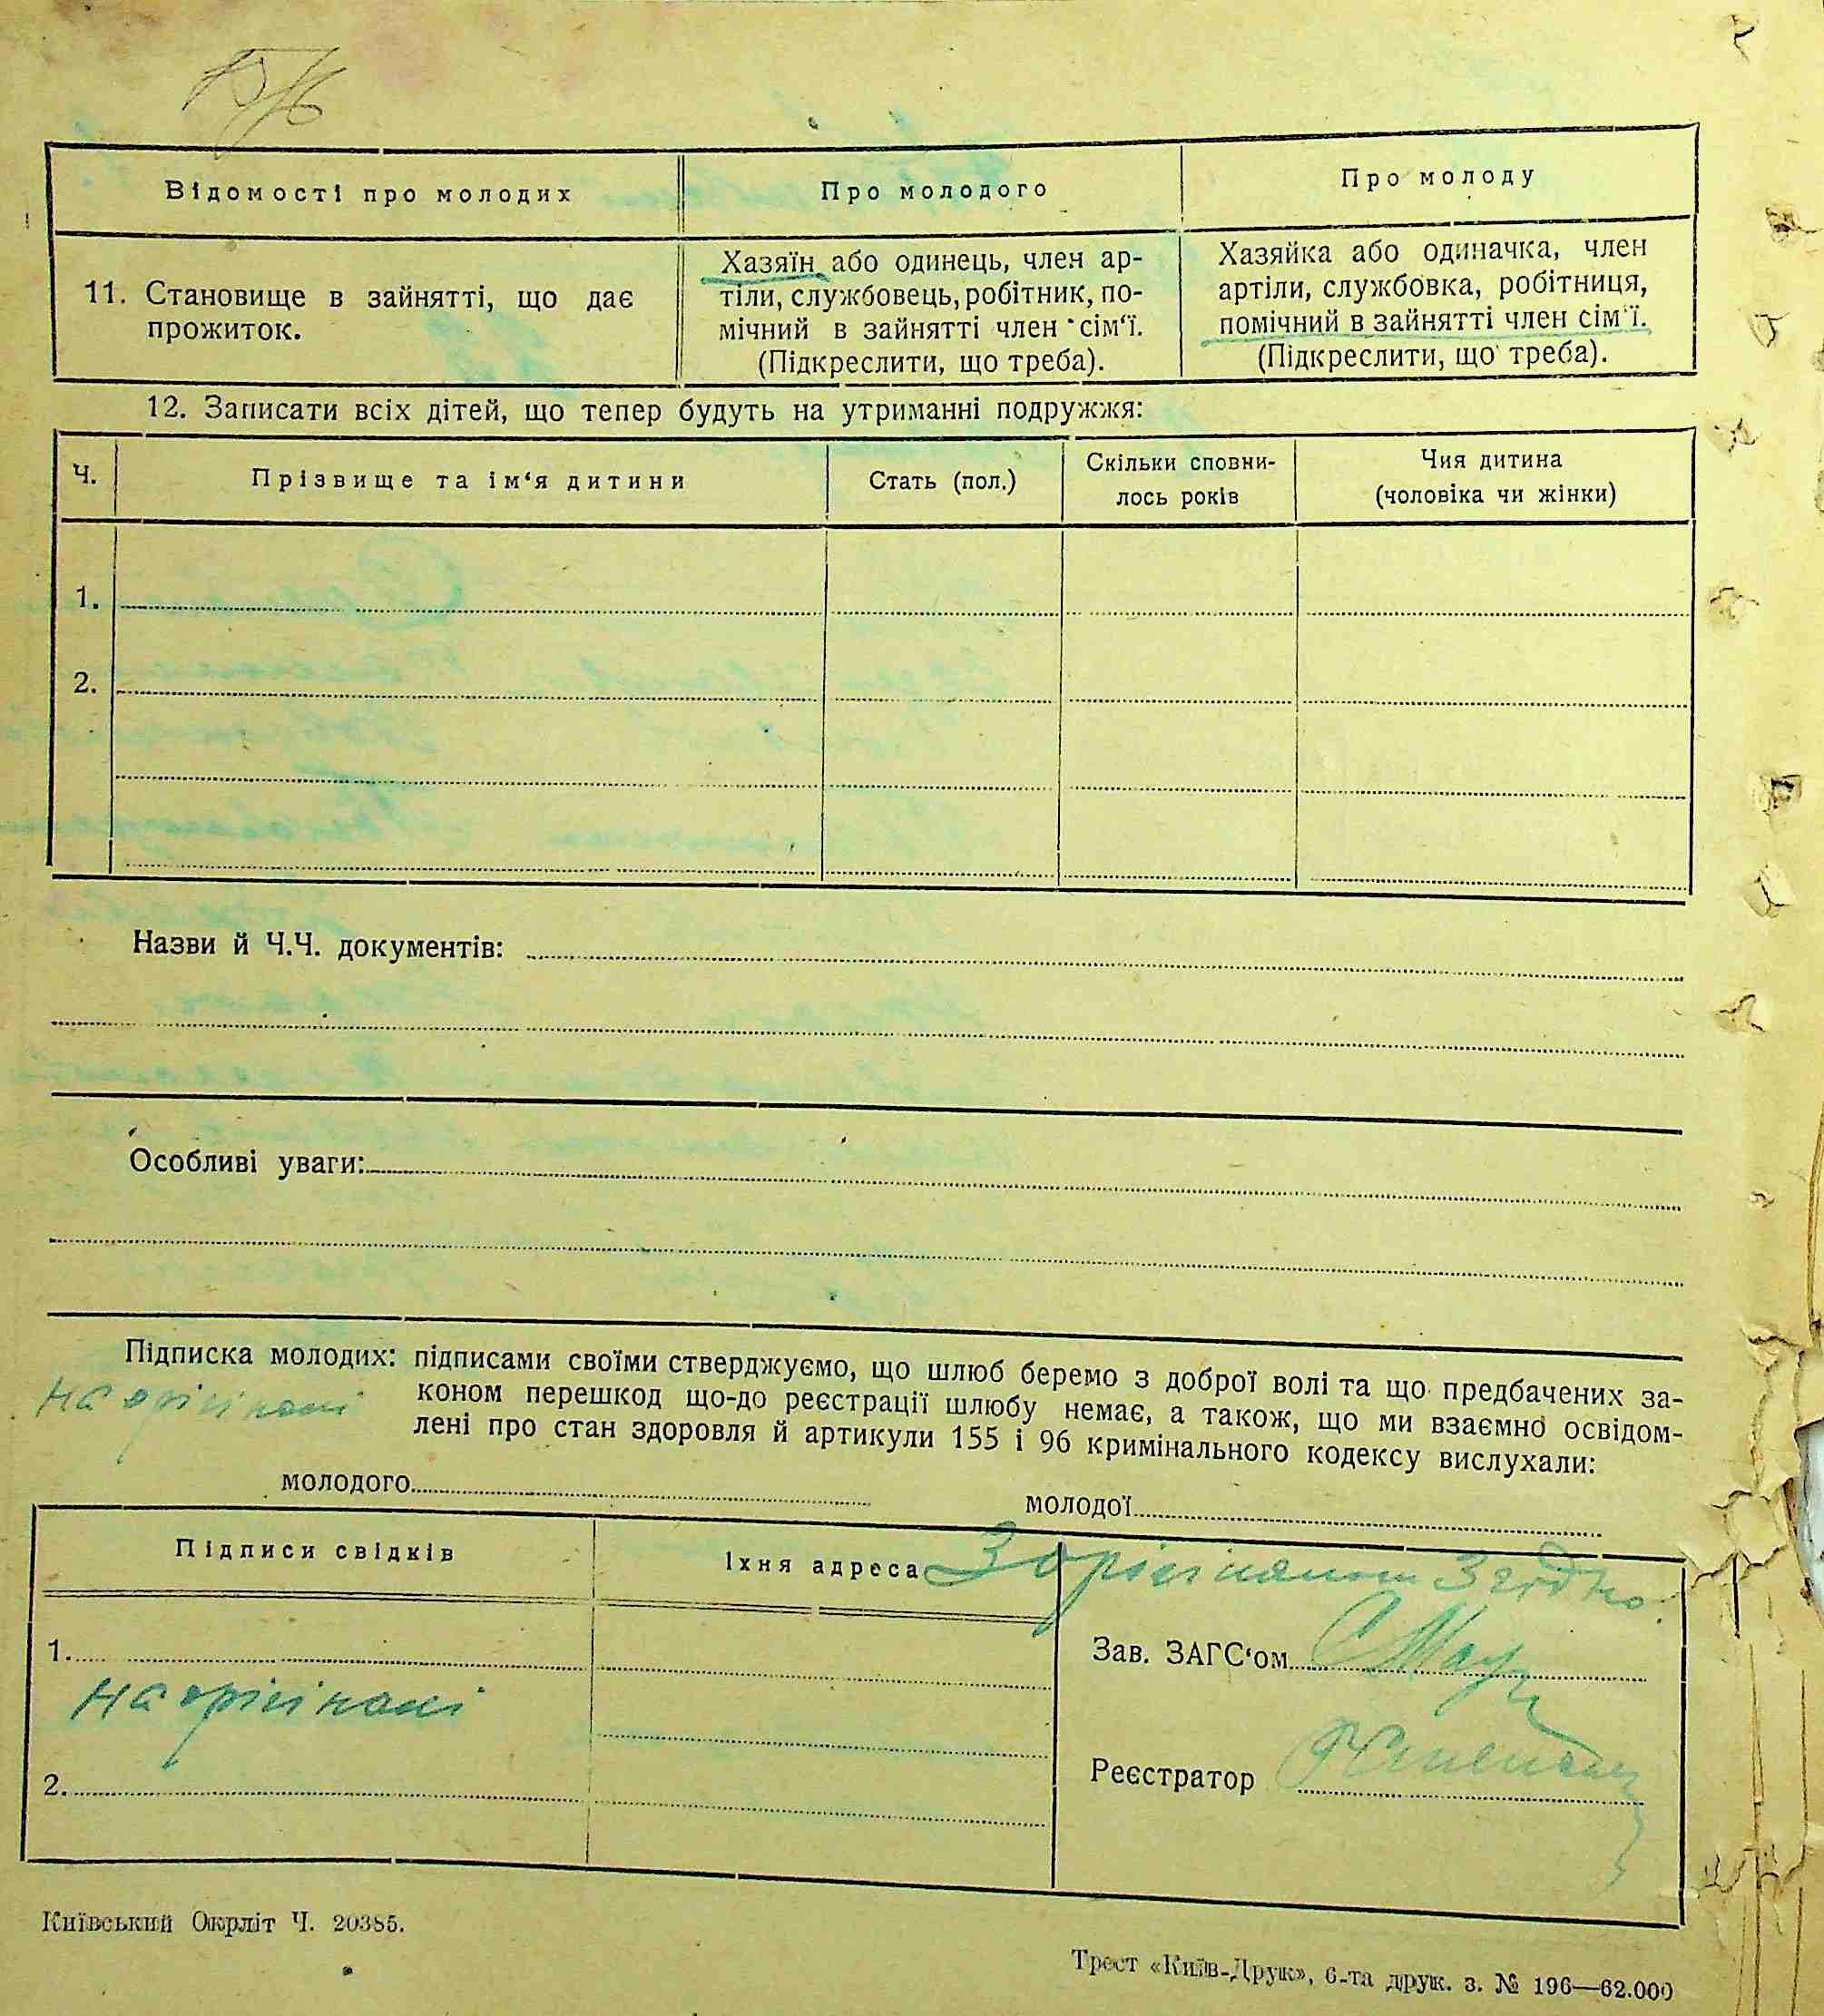 Відомості про молодих
Про молодого
Про молоду
11. Становище в зайнятті, що дає
прожиток.
Хазяїн або одинець, член ар-
тіли, службовець, робітник, по-
мічний в зайнятті член сім‘ї.
(Підкреслити, що треба).
Хазяйка або одиначка, член
артіли, службовка, робітниця,
помічний в зайнятті член сім‘ї.
(Підкреслити, що треба).
12. Записати всіх дітей, що тепер будуть на утриманні подружжя:
Ч.
Прізвище та ім‘я дитини
Стать (пол.)
Скільки сповни-
лось років
Чия дитина
(чоловіка чи жінки)
1.
2.
Назви й Ч.Ч. документів:
Особливі уваги:
Підписка молодих: підписами своїми стверджуємо, що шлюб беремо з доброї волі та що предбачених за-
на орігіналі
коном перешкод що-до реєстрації шлюбу немає, а також, що ми взаємно освідом-
лені про стан здоровля й артикули 155 і 96 кримінального кодексу вислухали:
молодого
молодої
Підписи свідків
Їхня адреса
З орігіналом згідно.
1.
на орігіналі
2.
Зав. ЗАГС‘ом
Реєстратор
Київський Окрліт Ч. 20385.
Трест «Київ-Друк», 6-та друк. з. № 196—62.000